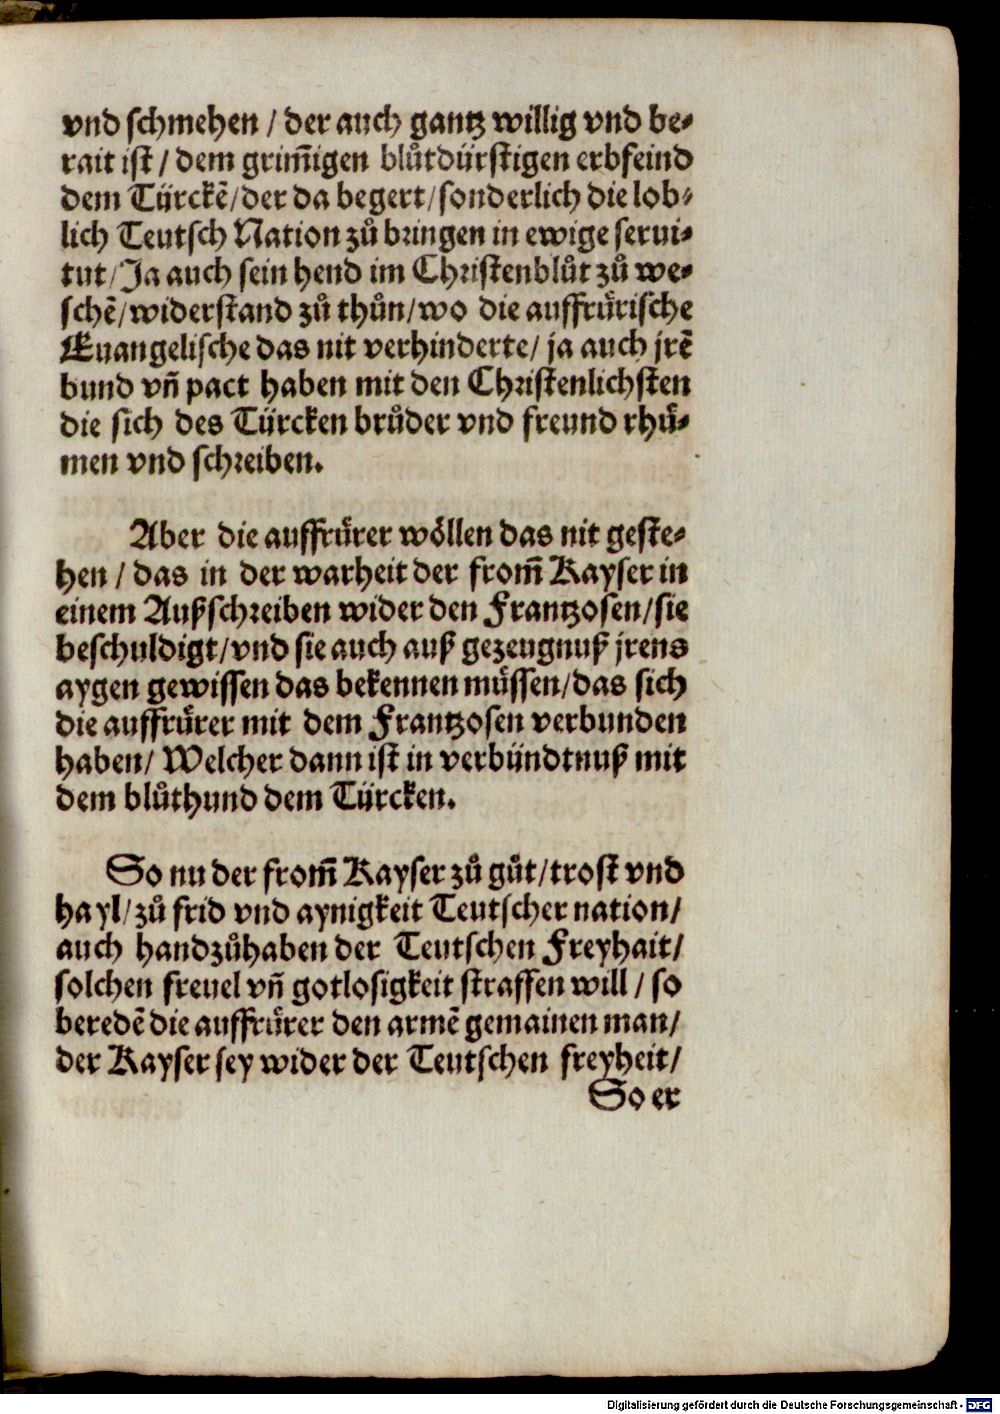 vnd schmehen / der auch gantz willig vnd be⸗
rait ist / dem grim̃igen blůtdürstigen erbfeind
dem Türckẽ/der da begert/sonderlich die lob⸗
lich Teutsch Nation zů bringen in ewige serui⸗
tut/Ja auch sein hend im Christenblůt zů we⸗
schẽ/widerstand zů thůn/wo die auffrürische
Euangelische das nit verhinderte/ ja auch jrẽ
bund vñ pact haben mit den Christenlichsten
die sich des Türcken brůder vnd freund rhů⸗
men vnd schreiben.
Aber die auffrürer wöllen das nit geste⸗
hen / das in der warheit der from̃ Kayser in
einem Außschreiben wider den Frantzosen/sie
beschuldigt/vnd sie auch auß gezeugnuß jrens
aygen gewissen das bekennen müssen/das sich
die auffrürer mit dem Frantzosen verbunden
haben/ Welcher dann ist in verbündtnuß mit
dem blůthund dem Türcken.
So nu der from̃ Kayser zů gůt/trost vnd
hayl/zů frid vnd aynigkeit Teutscher nation/
auch handzůhaben der Teutschen Freyhait/
solchen freuel vñ gotlosigkeit straffen will / so
beredẽ die auffrürer den armẽ gemainen man/
der Kayser sey wider der Teutschen freyheit/
So er
Digitalisierung gefördert durch die Deutsche Forschungsgemeinschaft - DFG